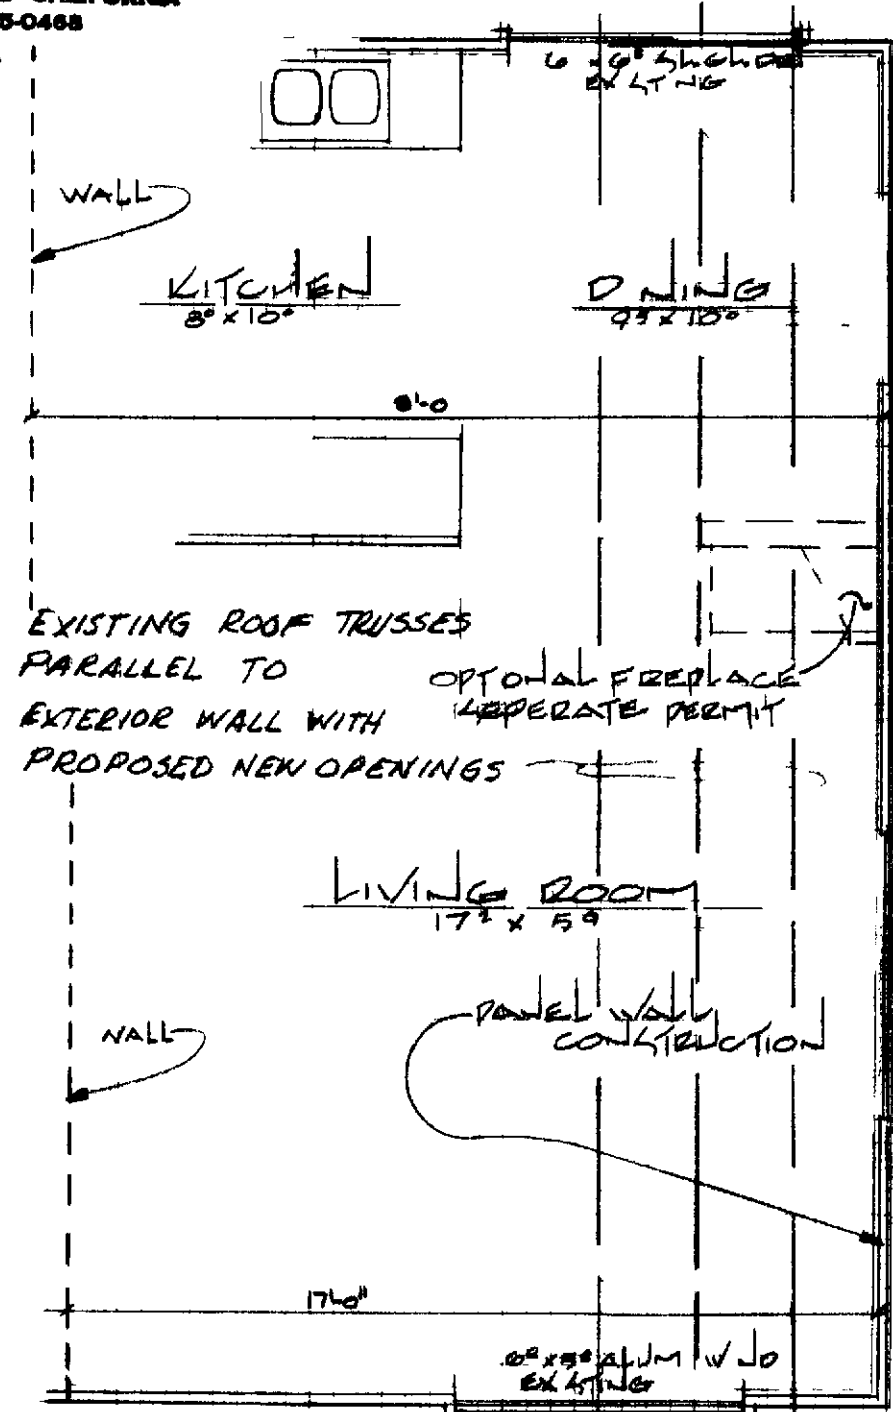 5-0468
6 x 6⁸
EXISTING
WALL
KITCHEN
8⁰ x 10⁰
DINING
9⁵ x 10⁰
8'-0
EXISTING ROOF TRUSSES
PARALLEL TO
EXTERIOR WALL WITH
PROPOSED NEW OPENINGS
OPTIONAL FIREPLACE
SEPERATE PERMIT
LIVING ROOM
17² x 5⁹
PANEL WALL
CONSTRUCTION
WALL
17'-0"
ALUM
EXISTING